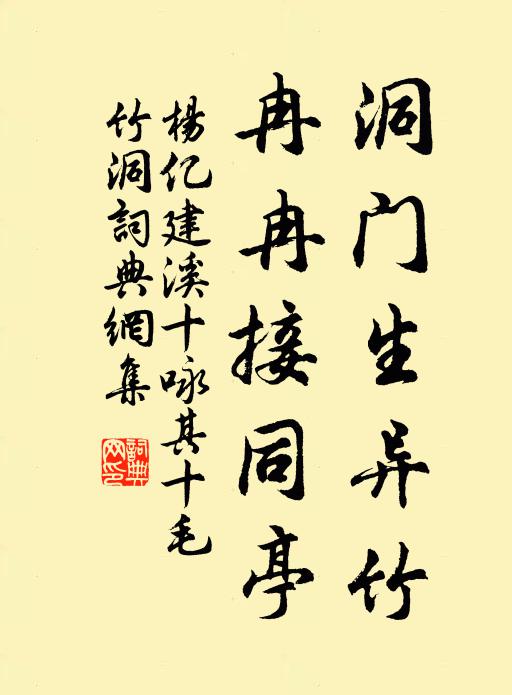 洞门生异竹
冉冉接同亭
杨亿建溪十咏其十毛
竹洞詞典網集
詞典
网印